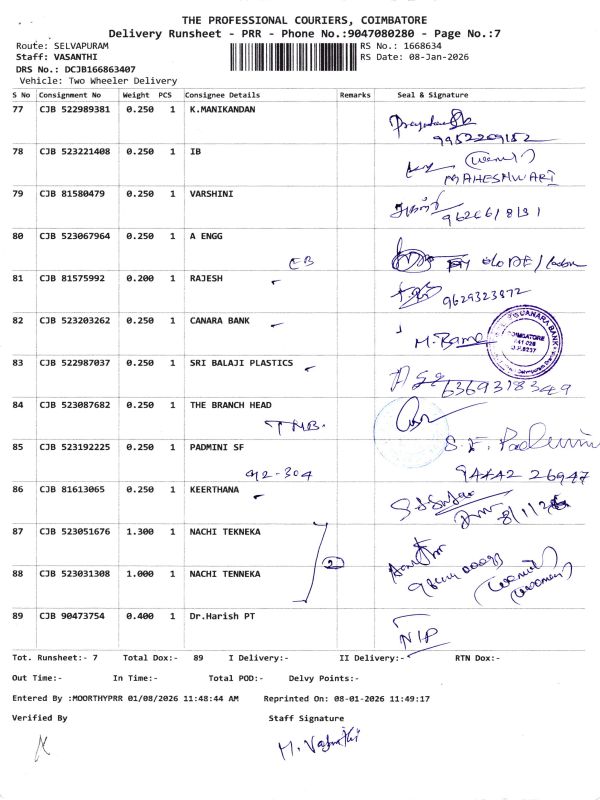 THE PROFESSIONAL COURIERS, COIMBATORE
Delivery Runsheet - PRR - Phone No.:9047080280 - Page No.:7
Route: SELVAPURAM RS No.: 1668634
Staff: VASANTHI RS Date: 08-Jan-2026
DRS No.: DCJB166863407
Vehicle: Two Wheeler Delivery
S No Consignment No Weight PCS Consignee Details Remarks Seal & Signature
77 CJB 522989381 0.250 1 K.MANIKANDAN
9952209152
78 CJB 523221408 0.250 1 IB
MAHESHWARI
79 CJB 81580479 0.250 1 VARSHINI
80 CJB 523067964 0.250 1 A ENGG
EB
81 CJB 81575992 0.200 1 RAJESH
9629323872
82 CJB 523203262 0.250 1 CANARA BANK
83 CJB 522987037 0.250 1 SRI BALAJI PLASTICS
6369318349
84 CJB 523087682 0.250 1 THE BRANCH HEAD
TMB.
85 CJB 523192225 0.250 1 PADMINI SF
S.F. Padmini
912-304
94442 26947
86 CJB 81613065 0.250 1 KEERTHANA
87 CJB 523051676 1.300 1 NACHI TEKNEKA
2
88 CJB 523031308 1.000 1 NACHI TENNEKA
89 CJB 90473754 0.400 1 Dr.Harish PT
NIP
Tot. Runsheet:- 7 Total Dox:- 89 I Delivery:- II Delivery:- RTN Dox:-
Out Time:- In Time:- Total POD:- Delvy Points:-
Entered By :MOORTHYPRR 01/08/2026 11:48:44 AM Reprinted On: 08-01-2026 11:49:17
Verified By Staff Signature
M. Vasanthi